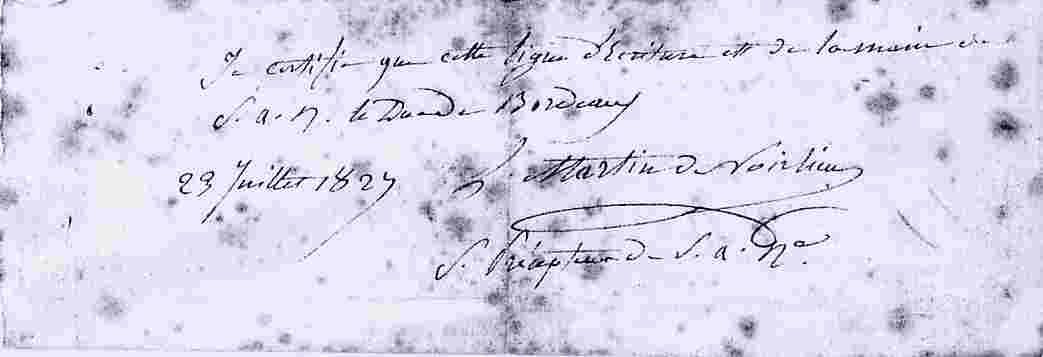 Je certifie que cette ligne d'Ecriture est de la main de
S. a. R. le Duc de Bordeaux
23 Juillet 1827 Martin de Noirlieu
S. Précepteur de S. a. R.